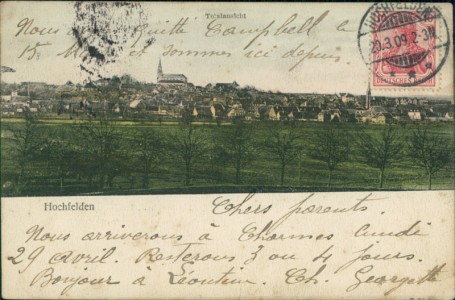 Totalansicht
Nous avons quitté Campbell le
15 et sommes ici depuis.
HOCHFELDEN
20.3.09 2-3N
DEUTSCHES
Hochfelden
Chers parents.
Nous arriverons à Charmes lundi
29 avril. Resterons 3 ou 4 jours.
Bonjour à Léontine. Ch. Georgette